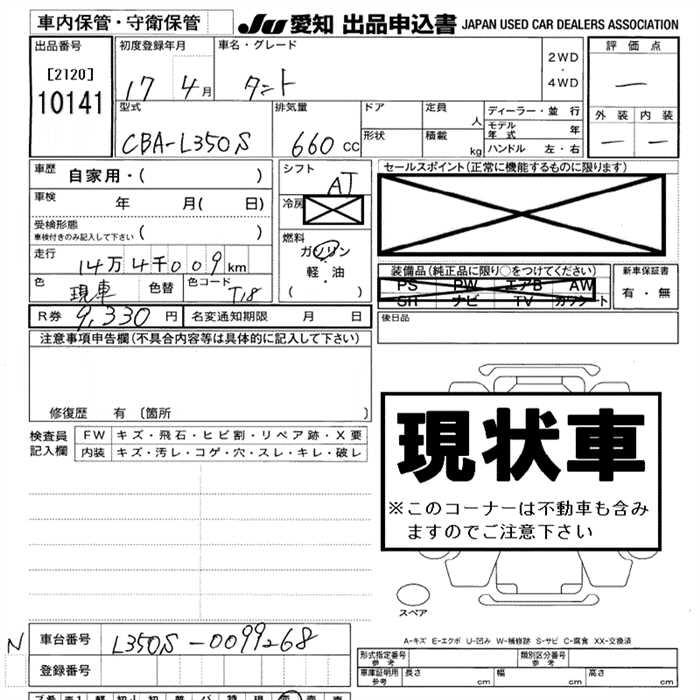 車内保管・守衛保管 JU 愛知 出品申込書 JAPAN USED CAR DEALERS ASSOCIATION
出品番号 初度登録年月 車名・グレード 2WD・4WD 評価点
[2120] 17 4月 タント —
10141
型式 排気量 ドア 定員 人 ディーラー・並行 外装 内装
CBA-L350S 660cc 形状 積載 kg モデル年式 年 — —
ハンドル 左・右
車歴 自家用・( ) シフト AT セールスポイント(正常に機能するものに限ります)
車検 年 月( 日) 冷房
受検形態
車検付きのみ記入して下さい 燃料 ガソリン
走行 14万4千009km 軽・油 装備品(純正品に限り○をつけてください) 新車保証書
色 現車 色替 色コード T18 ( ) PS PW エアB AW 有・無
SH ナビ TV カワシート
R券 9,330円 名変通知期限 月 日 後日品
注意事項申告欄(不具合内容等は具体的に記入して下さい)
修復歴 有 〔箇所 〕
検査員 FW キズ・飛石・ヒビ割・リペア跡・X要
記入欄 内装 キズ・汚レ・コゲ・穴・スレ・キレ・破レ
現状車
※このコーナーは不動車も含み
ますのでご注意下さい
スペア
A-キズ E-エクボ U-凹み W-補修跡 S-サビ C-腐食 XX-交換済
N 車台番号 L350S-0099268
登録番号
形式指定番号 参考 類別区分番号 参考
車庫証明用 参考 長さ cm 幅 cm 高さ cm